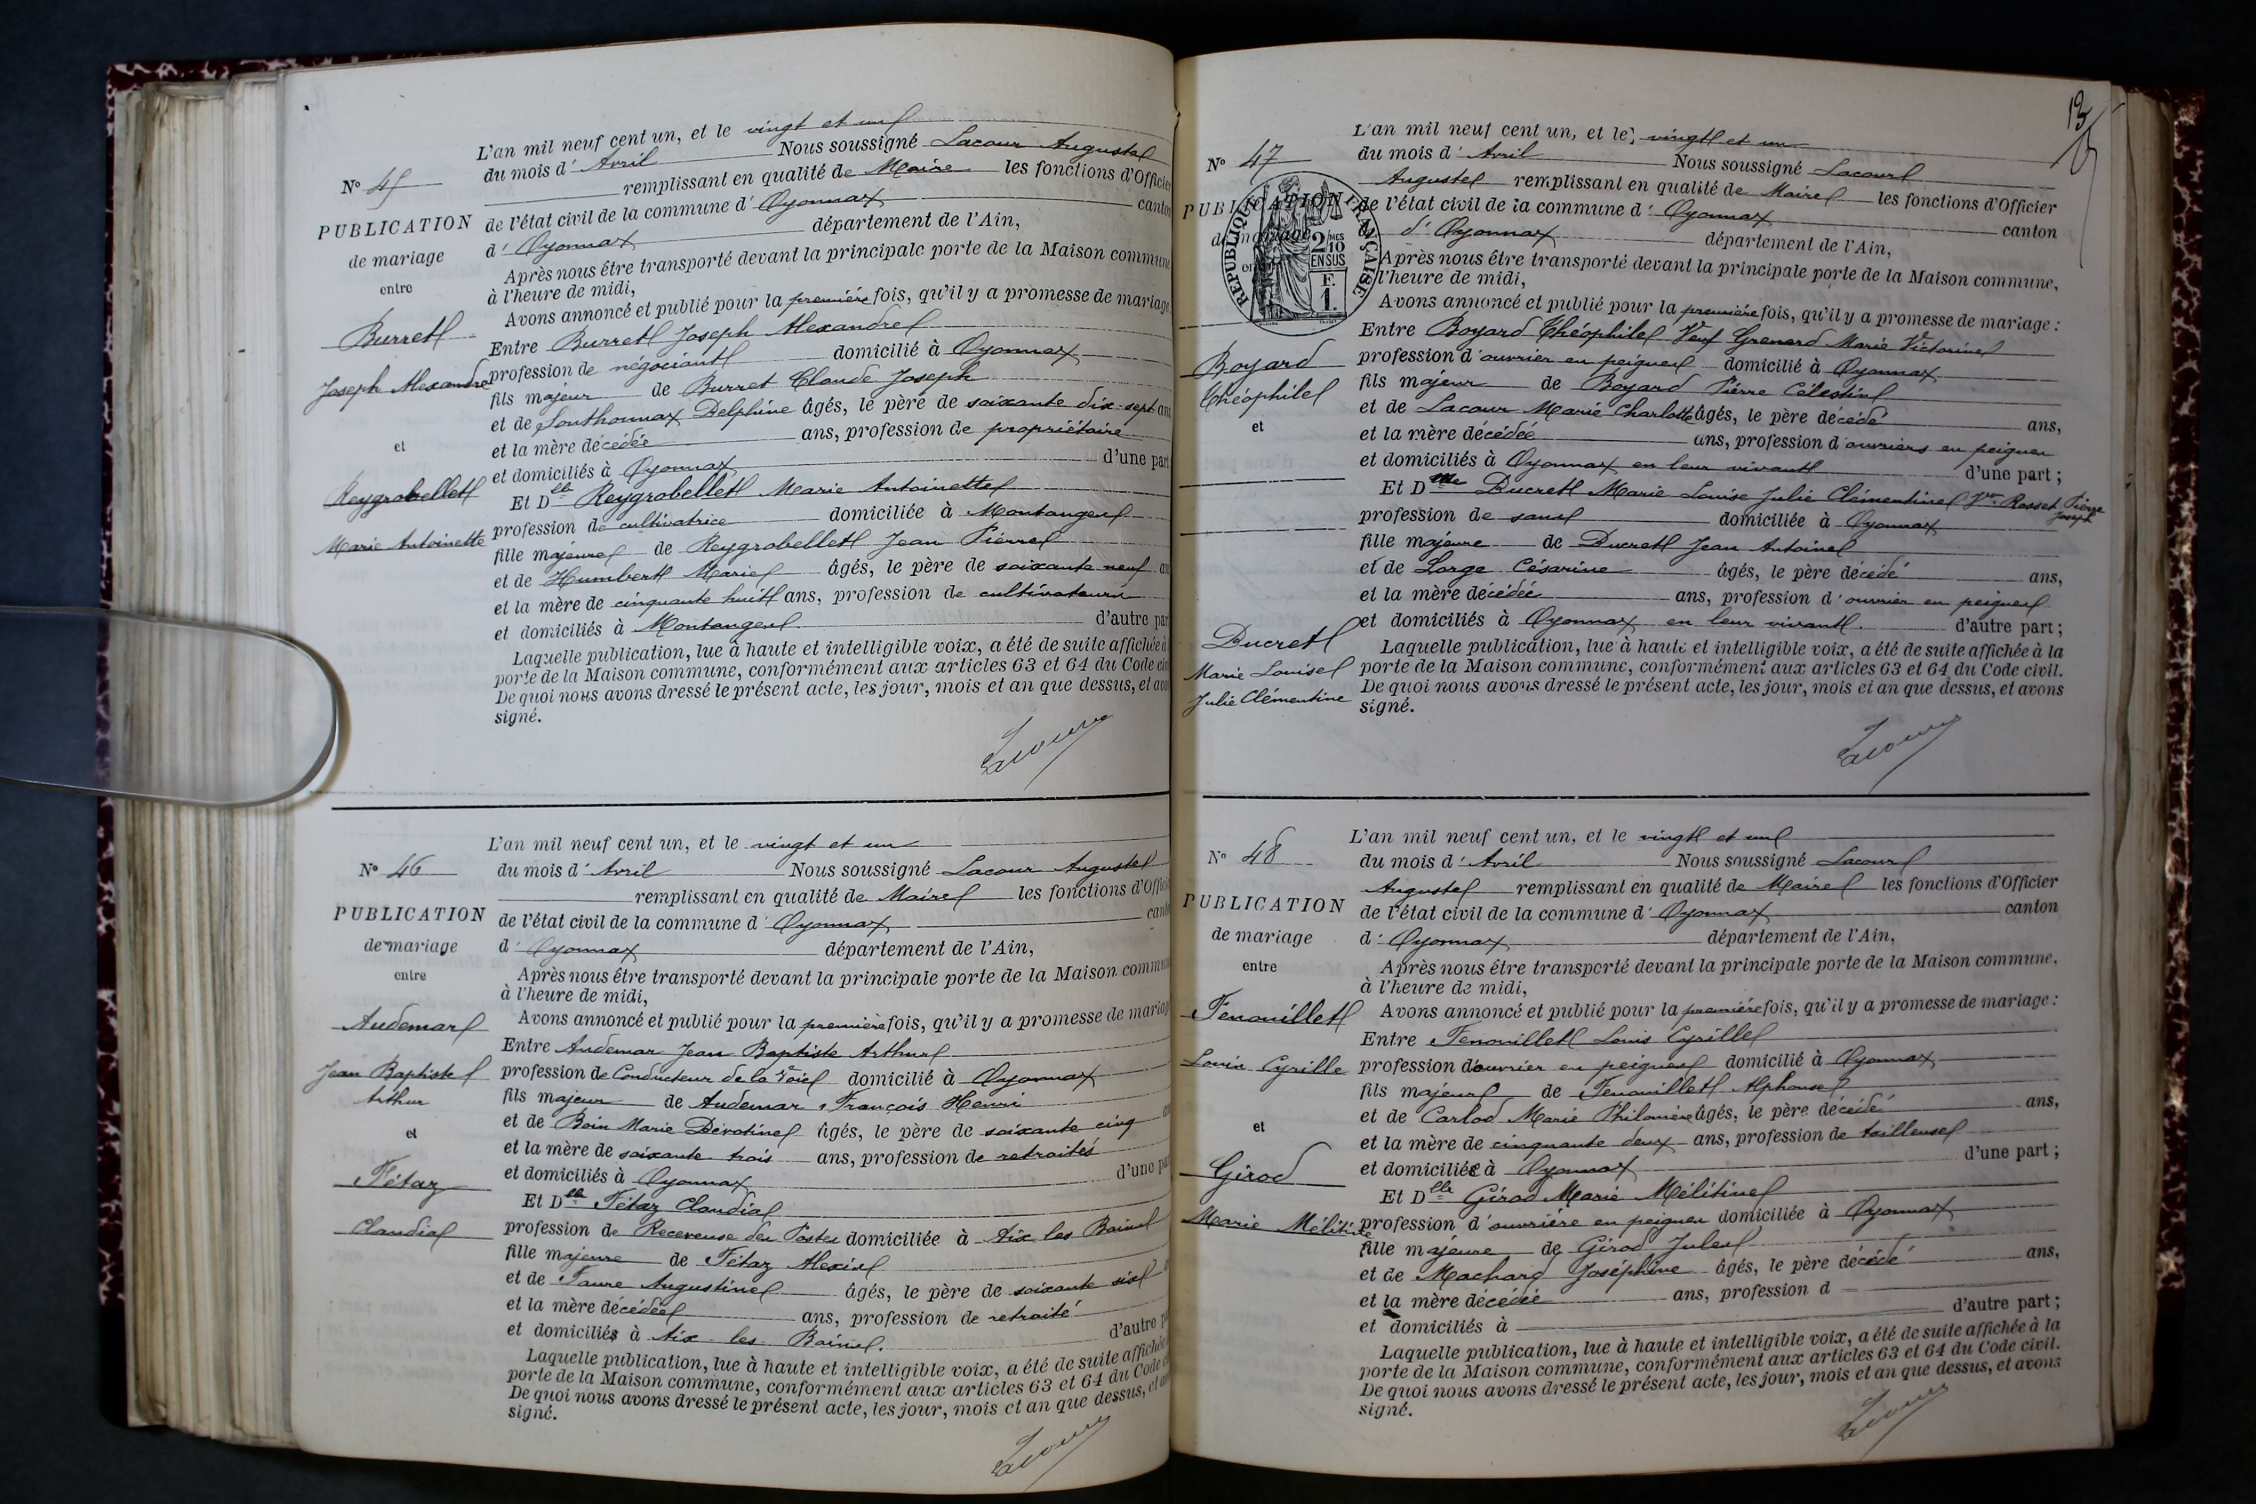 L'an mil neuf cent un, et le vingt et un
du mois d' Avril Nous soussigné Lacour Auguste
remplissant en qualité de Maire les fonctions d'Officier
N° 45
PUBLICATION
de mariage
entre
Burret
Joseph Alexandre
et
Reygrobellet
Marie Antoinette
de l'état civil de la commune d' Oyonnax canton
d' Oyonnax département de l'Ain,
Après nous être transporté devant la principale porte de la Maison commune
à l'heure de midi,
Avons annoncé et publié pour la première fois, qu'il y a promesse de mariage
Entre Burret Joseph Alexandre
profession de négociant domicilié à Oyonnax
fils majeur de Burret Claude Joseph
et de Sonthonnax Delphine âgés, le père de soixante dix-sept ans
et la mère décédée ans, profession de propriétaire
et domiciliés à Oyonnax d'une part
Et Dlle Reygrobellet Marie Antoinette
profession de cultivatrice domiciliée à Montange
fille majeure de Reygrobellet Jean Pierre
et de Humbert Marie âgés, le père de soixante neuf
et la mère de cinquante huit ans, profession de cultivateurs
et domiciliés à Montange d'autre par
Laquelle publication, lue à haute et intelligible voix, a été de suite affichée à
porte de la Maison commune, conformément aux articles 63 et 64 du Code civ
De quoi nous avons dressé le présent acte, les jour, mois et an que dessus, et avo
signé.
Lacour
N° 46
PUBLICATION
de mariage
entre
Audemar
Jean Baptiste
Arthur
et
Fétaz
Claudia
L'an mil neuf cent un, et le vingt et un
du mois d' Avril Nous soussigné Lacour Auguste
remplissant en qualité de Maire les fonctions d'Offici
de l'état civil de la commune d' Oyonnax cant
d' Oyonnax département de l'Ain,
Après nous être transporté devant la principale porte de la Maison commun
à l'heure de midi,
Avons annoncé et publié pour la première fois, qu'il y a promesse de mariag
Entre Audemar Jean Baptiste Arthur
profession de Conducteur de la Voie domicilié à Oyonnax
fils majeur de Audemar François Henri
et de Boin Marie Dévotine âgés, le père de soixante cinq
et la mère de soixante trois ans, profession de retraités
et domiciliés à Oyonnax d'une pa
Et Dlle Fétaz Claudia
profession de Receveuse des Postes domiciliée à Aix les Bains
fille majeure de Fétaz Alexis
et de Faure Augustine âgés, le père de soixante six
et la mère décédée ans, profession de retraité
et domiciliés à Aix-les-Bains. d'autre p
Laquelle publication, lue à haute et intelligible voix, a été de suite affichée
porte de la Maison commune, conformément aux articles 63 et 64 du Code ci
De quoi nous avons dressé le présent acte, les jour, mois et an que dessus, et av
signé.
Lacour
13
N° 47
PUBLICATION
de mariage
entre
RÉPUBLIQUE FRANÇAISE
2 MES
10
EN SUS
F.
1.
Boyard
Théophile
et
Ducret
Marie Louise
Julie Clémentine
L'an mil neuf cent un, et le vingt et un
du mois d' Avril Nous soussigné Lacour
Auguste remplissant en qualité de Maire les fonctions d'Officier
de l'état civil de la commune d' Oyonnax canton
d' Oyonnax département de l'Ain,
Après nous être transporté devant la principale porte de la Maison commune,
à l'heure de midi,
Avons annoncé et publié pour la première fois, qu'il y a promesse de mariage :
Entre Boyard Théophile Veuf Grenard Marie Victorine
profession d'ouvrier en peignes domicilié à Oyonnax
fils majeur de Boyard Pierre Célestin
et de Lacour Marie Charlotte âgés, le père décédé ans,
et la mère décédée ans, profession d'ouvriers en peignes
et domiciliés à Oyonnax en leur vivant d'une part ;
Et Dme Ducret Marie Louise Julie Clémentine Vve Rosset Pierre
Joseph
profession de sans domiciliée à Oyonnax
fille majeure de Ducret Jean Antoine
et de Lorge Césarine âgés, le père décédé ans,
et la mère décédée ans, profession d'ouvrier en peignes
et domiciliés à Oyonnax en leur vivant. d'autre part ;
Laquelle publication, lue à haute et intelligible voix, a été de suite affichée à la
porte de la Maison commune, conformément aux articles 63 et 64 du Code civil.
De quoi nous avons dressé le présent acte, les jour, mois et an que dessus, et avons
signé.
Lacour
N° 48
PUBLICATION
de mariage
entre
Fenouillet
Louis Cyrille
et
Girod
Marie Mélitine
L'an mil neuf cent un, et le vingt et un
du mois d' Avril Nous soussigné Lacour
Auguste remplissant en qualité de Maire les fonctions d'Officier
de l'état civil de la commune d' Oyonnax canton
d' Oyonnax département de l'Ain,
Après nous être transporté devant la principale porte de la Maison commune,
à l'heure de midi,
Avons annoncé et publié pour la première fois, qu'il y a promesse de mariage :
Entre Fenouillet Louis Cyrille
profession d'ouvrier en peignes domicilié à Oyonnax
fils majeur de Fenouillet Alphonse
et de Carlod Marie Philomène âgés, le père décédé ans,
et la mère de cinquante deux ans, profession de tailleuse
et domiciliée à Oyonnax d'une part ;
Et Dlle Girod Marie Mélitine
profession d'ouvrière en peignes domiciliée à Oyonnax
fille majeure de Girod Jules
et de Machard Joséphine âgés, le père décédé ans,
et la mère décédée ans, profession d
et domiciliés à d'autre part ;
Laquelle publication, lue à haute et intelligible voix, a été de suite affichée à la
porte de la Maison commune, conformément aux articles 63 et 64 du Code civil.
De quoi nous avons dressé le présent acte, les jour, mois et an que dessus, et avons
signé.
Lacour